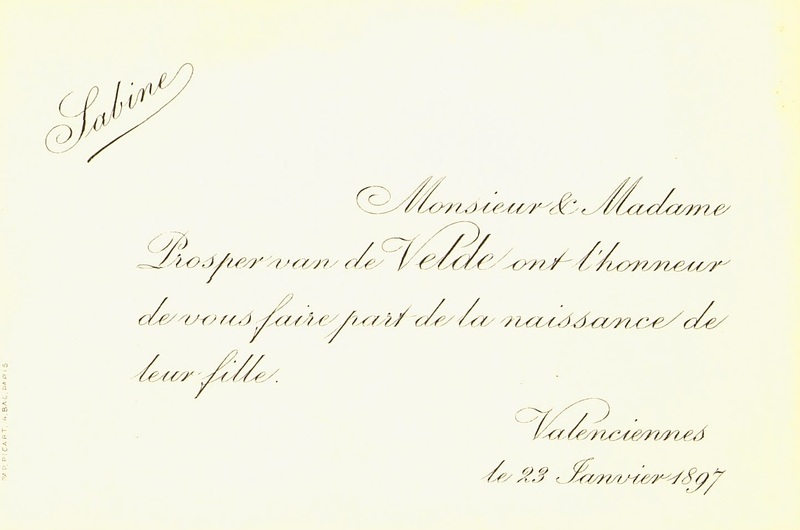 Sabine
Monsieur & Madame
Prosper van de Velde ont l'honneur
de vous faire part de la naissance de
leur fille.
Valenciennes
le 23 Janvier 1897